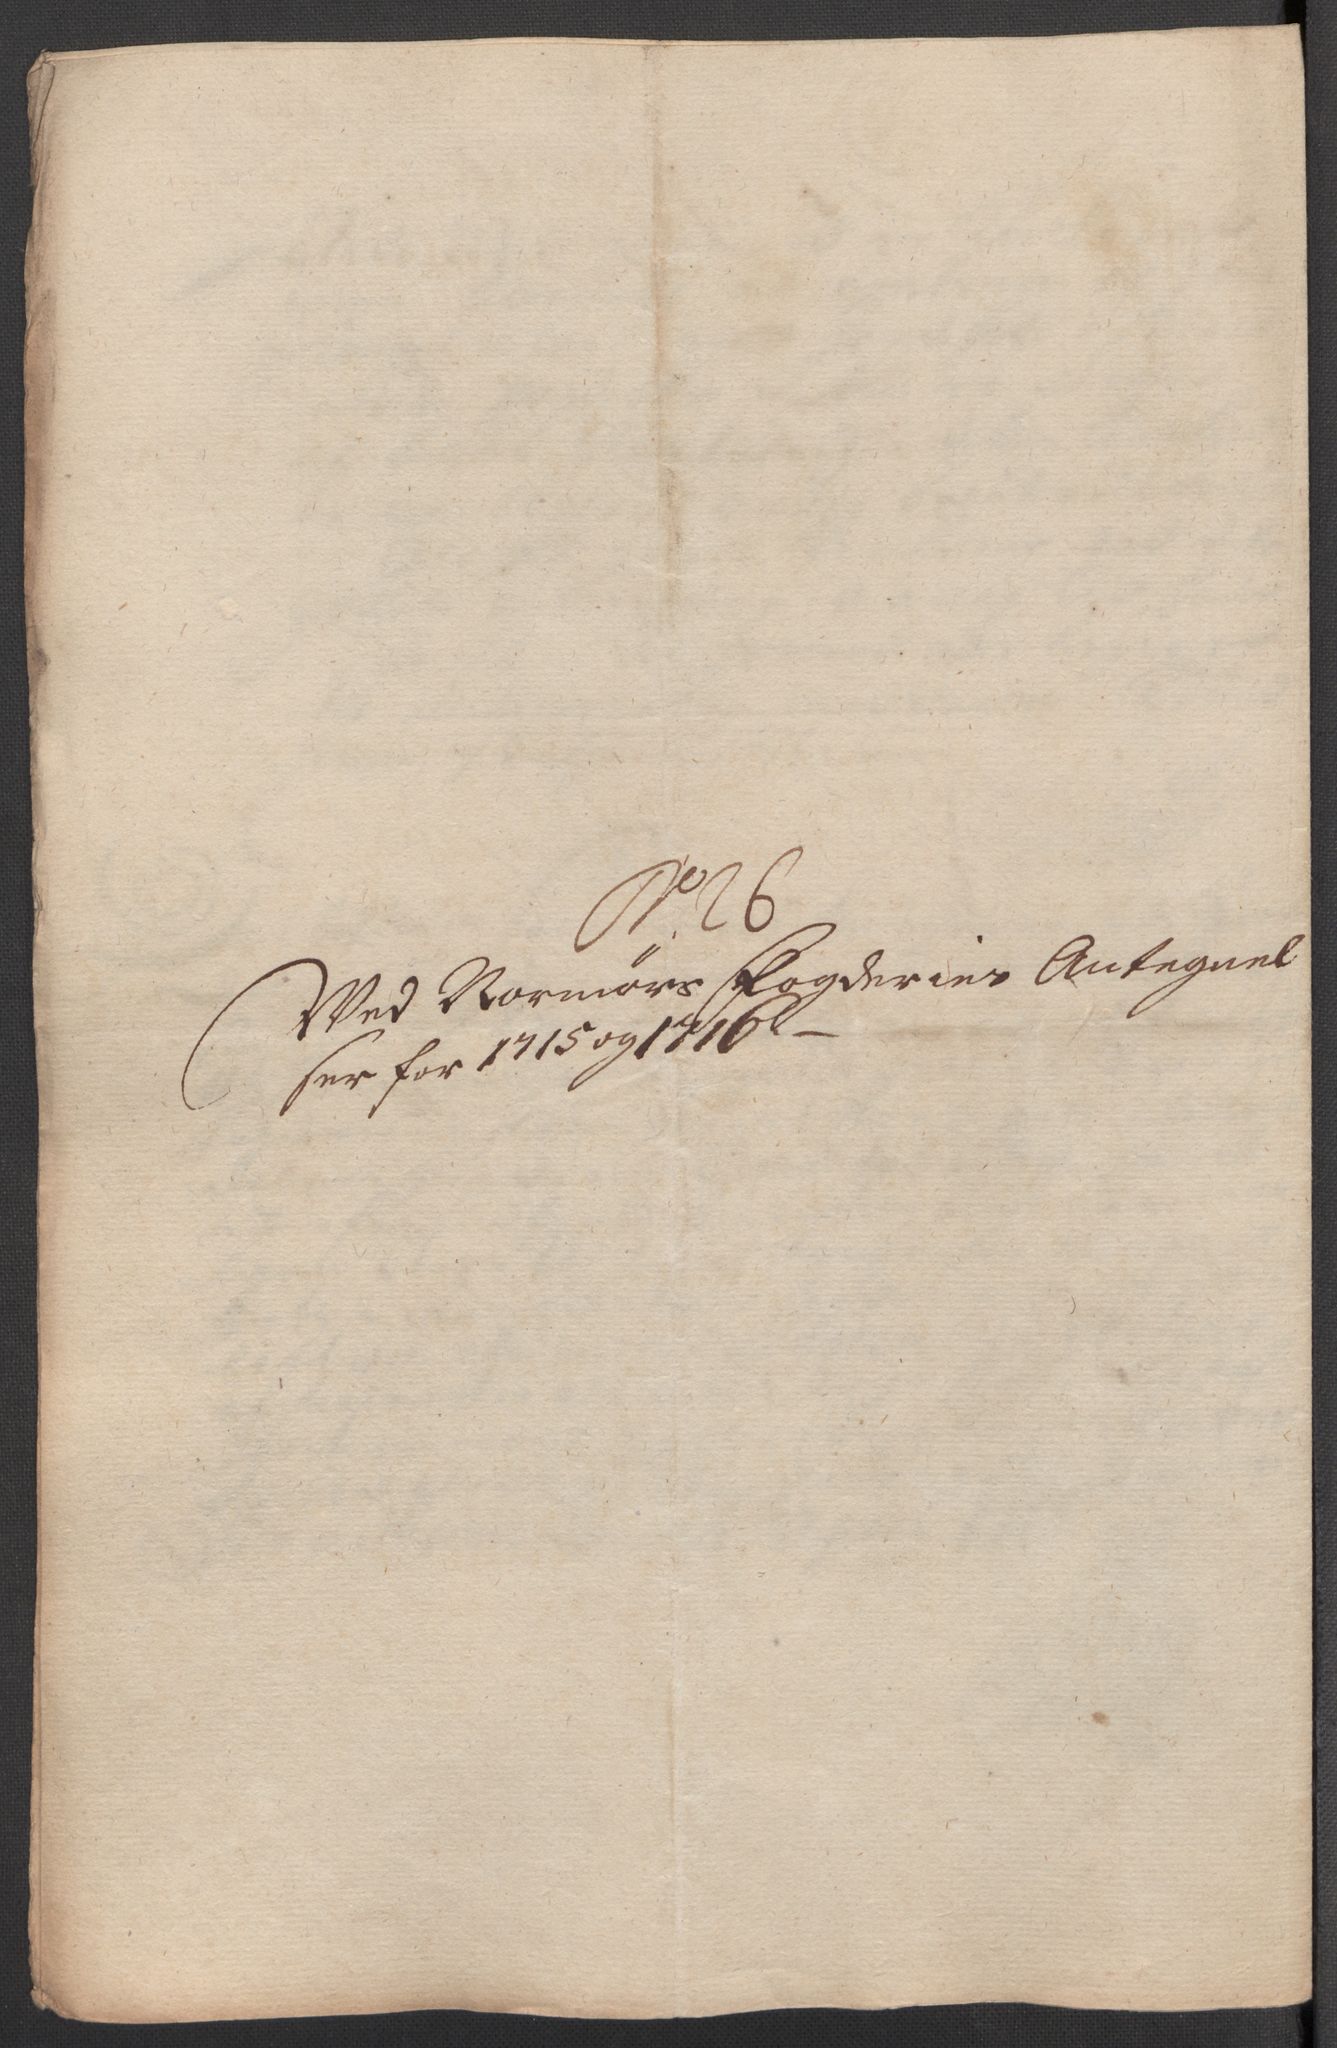 No 26
Ved Normørs Fogderies Antegnel
ser for 1715 og 1716